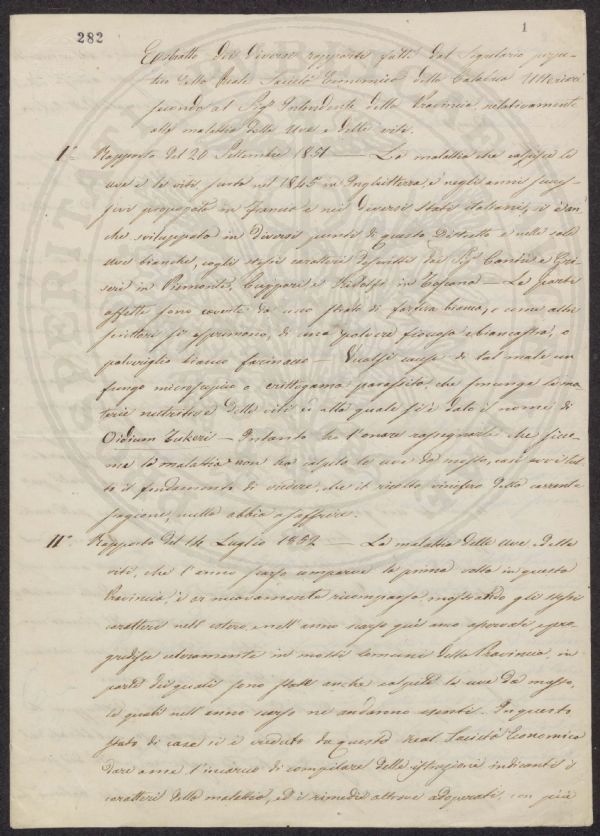 282
1
Estratto dei diversi rapporti fatti dal Segretario perpe-
tuo della Reale Società Economica della Calabria Ulteriore
seconda al Sigr Intendente della Provincia relativamente
alla malattia delle Uve e delle viti.
I° Rapporto del 20 Settembre 1851 — La malattia che colpisce le
uve e le viti, surta nel 1845 in Inghilterra, e negli anni succes-
sivi propagata in Francia e nei diversi Stati italiani, si è an-
che sviluppata in diversi punti di questo Distretto e nelle sole
uve bianche, cogli stessi caratteri descritti dai Sigri Cantù e Gri-
seri in Piemonte, Cuppari e Ridolfi in Toscana — Le parti
affette sono coverte da uno strato di farina bianca, o come altri
scrittori si esprimono, di una polvere fioccosa biancastra, o
polviglio bianco farinaceo — Vuolsi causa di tal male un
fungo microscopico o crittogama parassita, che smunga la ma-
teria nutritiva delle viti ed alla quale si è dato il nome di
Oidium Tukeri — Intanto ho l'onore rassegnarle che sicco-
me la malattia non ha colpito le uve da mosto, così avvi tut-
to il fondamento di credere, che il ricolto vinifero della corrente
stagione, nulla abbia a soffrire.
II° Rapporto del 14 Luglio 1852 — La malattia delle Uve e delle
viti, che l'anno scorso comparve la prima volta in questa
Provincia, è or nuovamente ricomparsa mostrando gli stessi
caratteri nell'estero, e nell'anno scorso quì anco osservati, e pro-
gredisce celeramente in molti comuni della Provincia, in
parte dei quali sono state anche colpite le uve da mosto,
le quali nell'anno scorso ne andarono esenti. In questo
stato di cose si è creduto da questa real Società Economica
dare a me l'incarico di compilare delle istruzioni indicanti i
caratteri della malattia, ed i rimedii altrove adoperati, con più